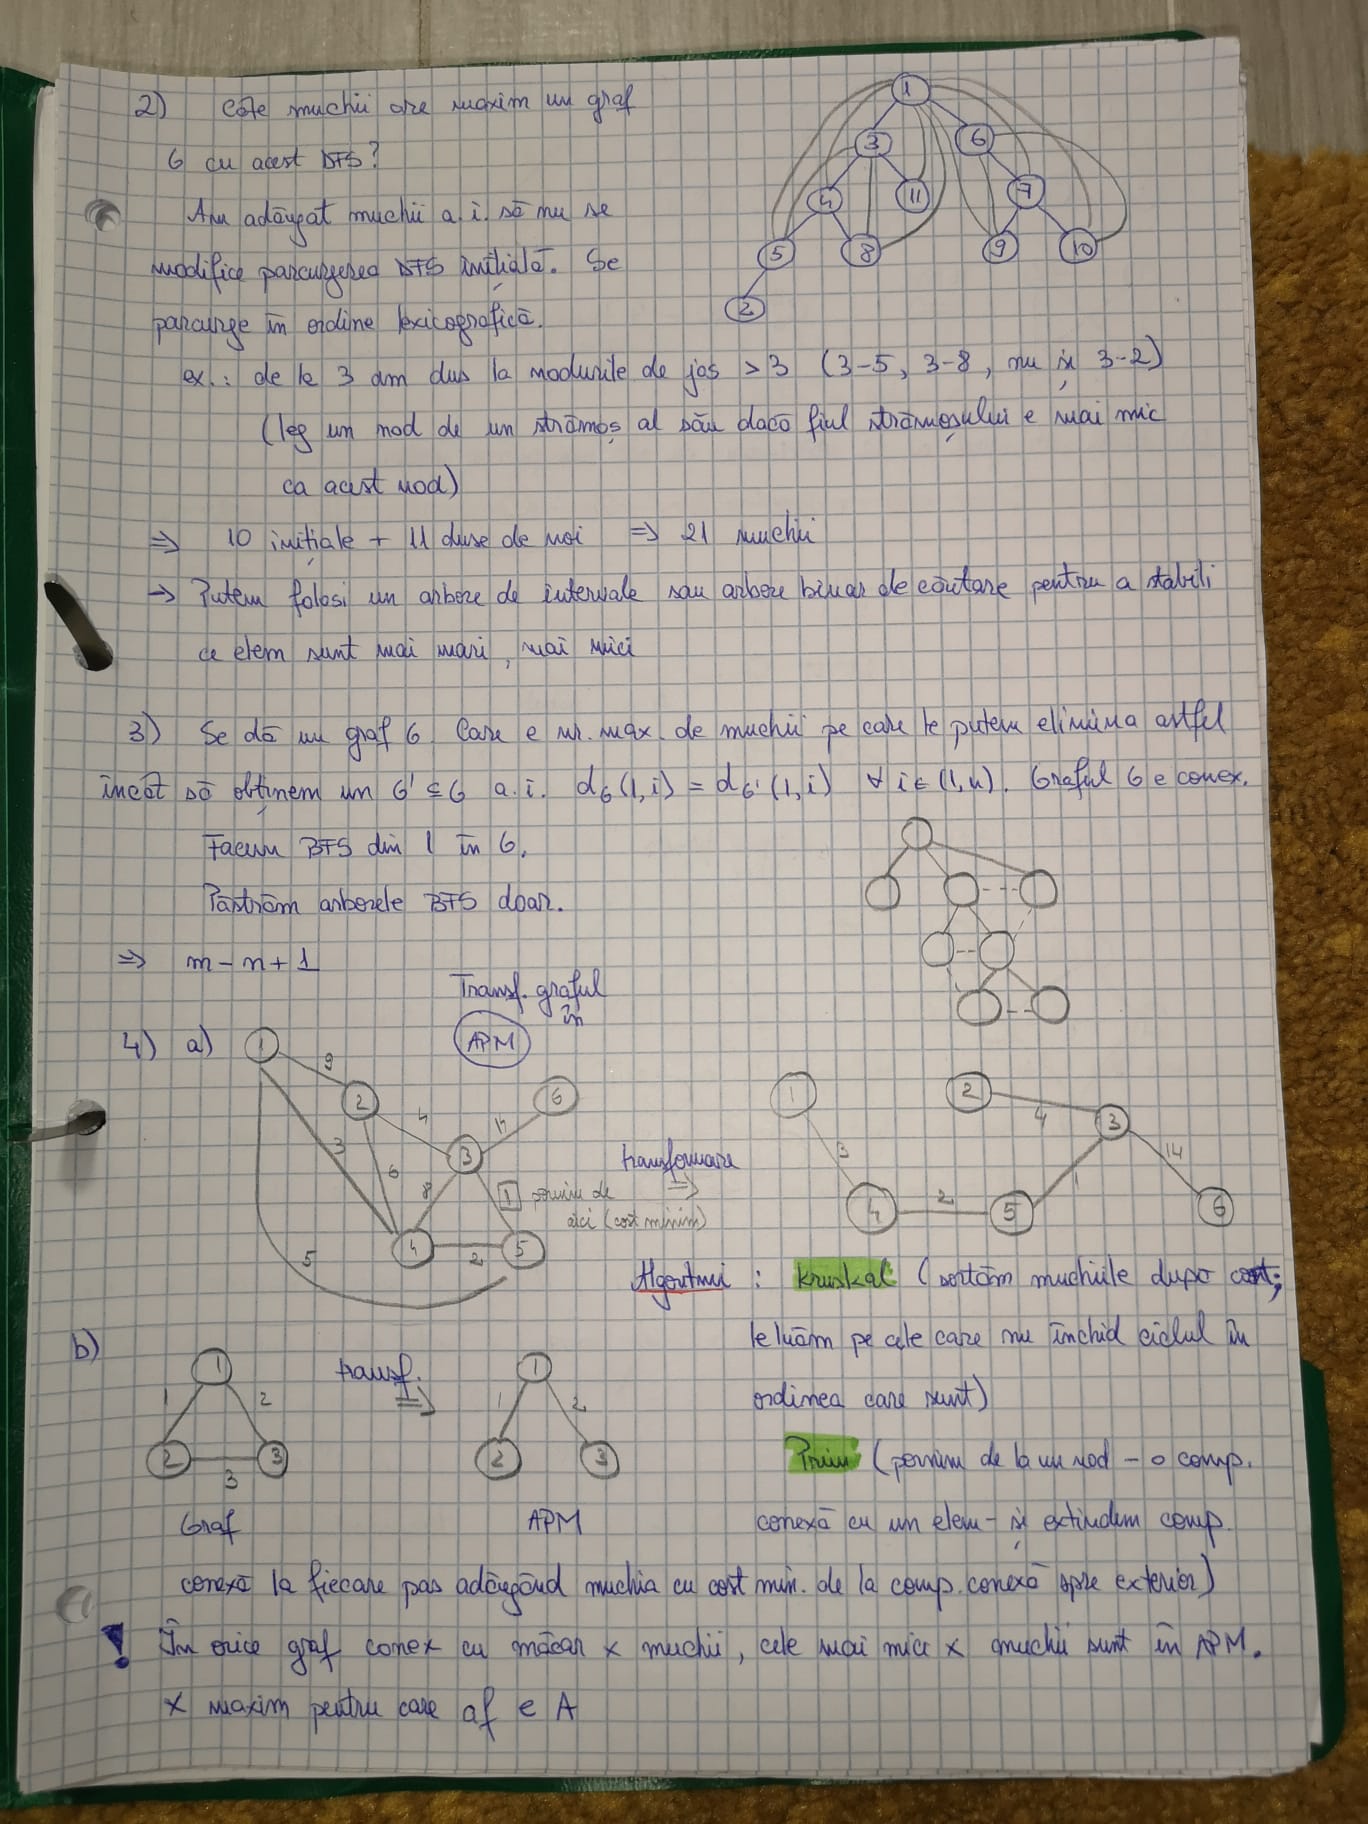 2) Câte muchii are maxim un graf
G cu acest DFS?
Am adăugat muchii a.i. să nu se
modifice parcurgerea DFS inițială. Se
parcurge în ordine lexicografică.
ex.: de la 3 am dus la nodurile de jos > 3 (3-5, 3-8, nu și 3-2)
(leg un nod de un strămoș al său dacă fiul strămoșului e mai mic
ca acest nod)
⇒ 10 inițiale + 11 duse de noi ⇒ 21 muchii
→ Putem folosi un arbore de intervale sau arbore binar de căutare pentru a stabili
ce elem sunt mai mari, mai mici
1
3 6
4 11 7
5 8 9 10
2
3) Se dă un graf G. Care e nr. max. de muchii pe care le putem elimina astfel
încât să obținem un G' ⊆ G a.i. d_G(1,i) = d_G'(1,i) ∀ i ∈ (1,n). Graful G e conex.
Facem BFS din 1 în G.
Păstrăm arborele BFS doar.
⇒ m-n+1
Transf. graful
în
APM
4) a)
1 9 2 4 3 14 6
3 6 8 1 pornim de
aici (cost minim)
4 2 5
5
transformare
⇒
1 2 4 3
3 14
4 2 5 1 6
Algoritmi : Kruskal (sortăm muchiile după cost;
le luăm pe cele care nu închid ciclul în
ordinea care sunt)
b)
1
1 2
2 3 3
Graf
transf.
⇒
1
1 2
2 3
APM
Prim (pornim de la un nod - o comp.
conexă cu un elem - și extindem comp.
conexă la fiecare pas adăugând muchia cu cost min. de la comp. conexă spre exterior)
! În orice graf conex cu măcar x muchii, cele mai mici x muchii sunt în APM.
x maxim pentru care af e A